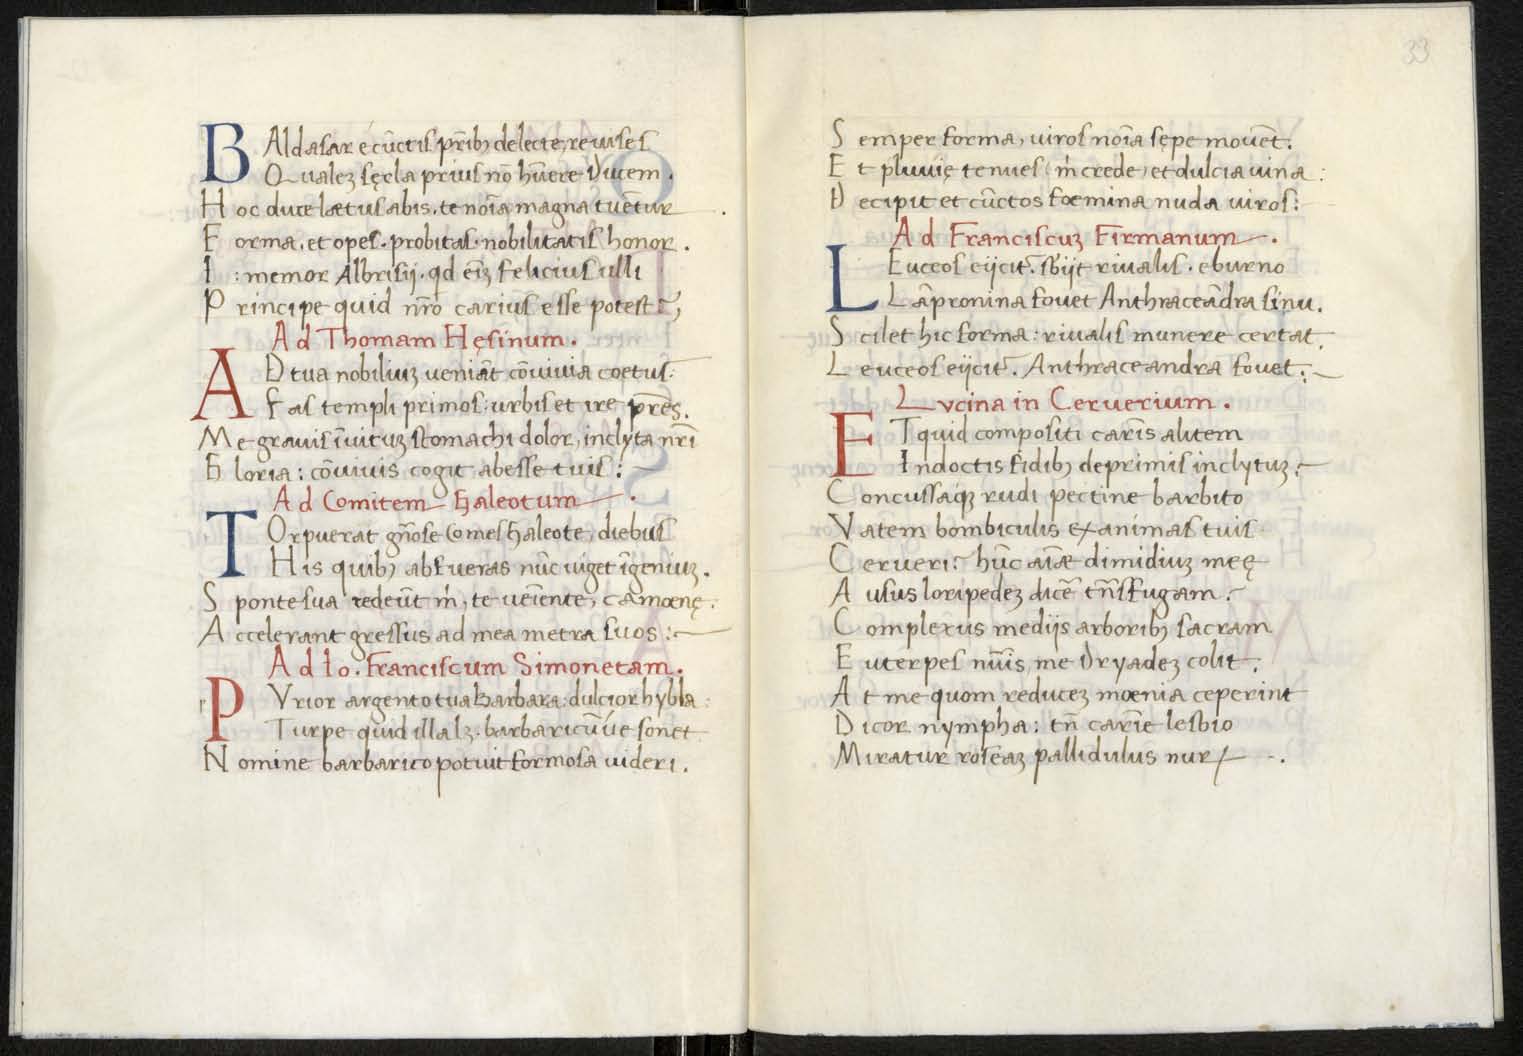 BAldasar é cūctis p̄ribꝫ delecte, reuises
Qualeꝫ sęcla prius nō hr̄ere Ducem.
Hoc duce lætus abis, te nōīa magna tuētur.
Forma, et opes, probitas, nobilitatis honor.
I: memor Albrisij, qd em̄ felicius ulli
Principe quid nr̄o carius esse potest?
Ad Thomam Hęsinum.
AD tua nobiliuꝫ ueniāt cōuiuia coetus:
Fas templi primos: urbis et ire p̄res.
Me grauis īuituꝫ stomachi dolor, inclyta nr̄i
Gloria: cōuiuis cogit abesse tuis:
Ad Comitem Galeotum.
TOrpuerat gn̄ose Comes Galeote, diebus
His quibꝫ abfueras nūc uiget īgeniuꝫ.
Sponte sua redeūt m̄, te ueīente, camœnę:
Accelerant gressus ad mea metra suos:
Ad Io. Franciscum Simonetam.
PUrior argento tua Barbara: dulcior hybla:
Turpe quid illa lꝫ: barbaricūúe sonet
Nomine barbarico potuit formosa uideri.
33
Semper forma, uiros nōīa sępe mouēt.
Et pluuię tenues (m̄ crede) et dulcia uina:
Decipit et cūctos fœmina nuda uiros:
Ad Franciscuꝫ Firmanum.
LEuceos eijcit: sbijt riualis. eburno
Lāpronina fouet Anthraceādra sinu.
Scilet hic forma: riualis munere certat.
Leuceos eijcit. Anthraceandra fouet:
Lucina in Ceruerium.
ET quid compositi carīs alitem
Indoctis fidibꝫ deprimis inclytuꝫ:
Concussaqꝫ rudi pectine barbito
Vatem bombiculis exanimas tuis
Cerueri? hūc aīæ dimidiuꝫ meę
Ausus loripedeꝫ dicē tn̄s fugam?
Complexus medijs arboribꝫ sacram
Euterpes nūīs, me Dryadeꝫ colit.
At me quom reduceꝫ mœnia ceperint
Dicor nympha: tn̄ carīe lesbio
Miratur roseaꝫ pallidulus nur